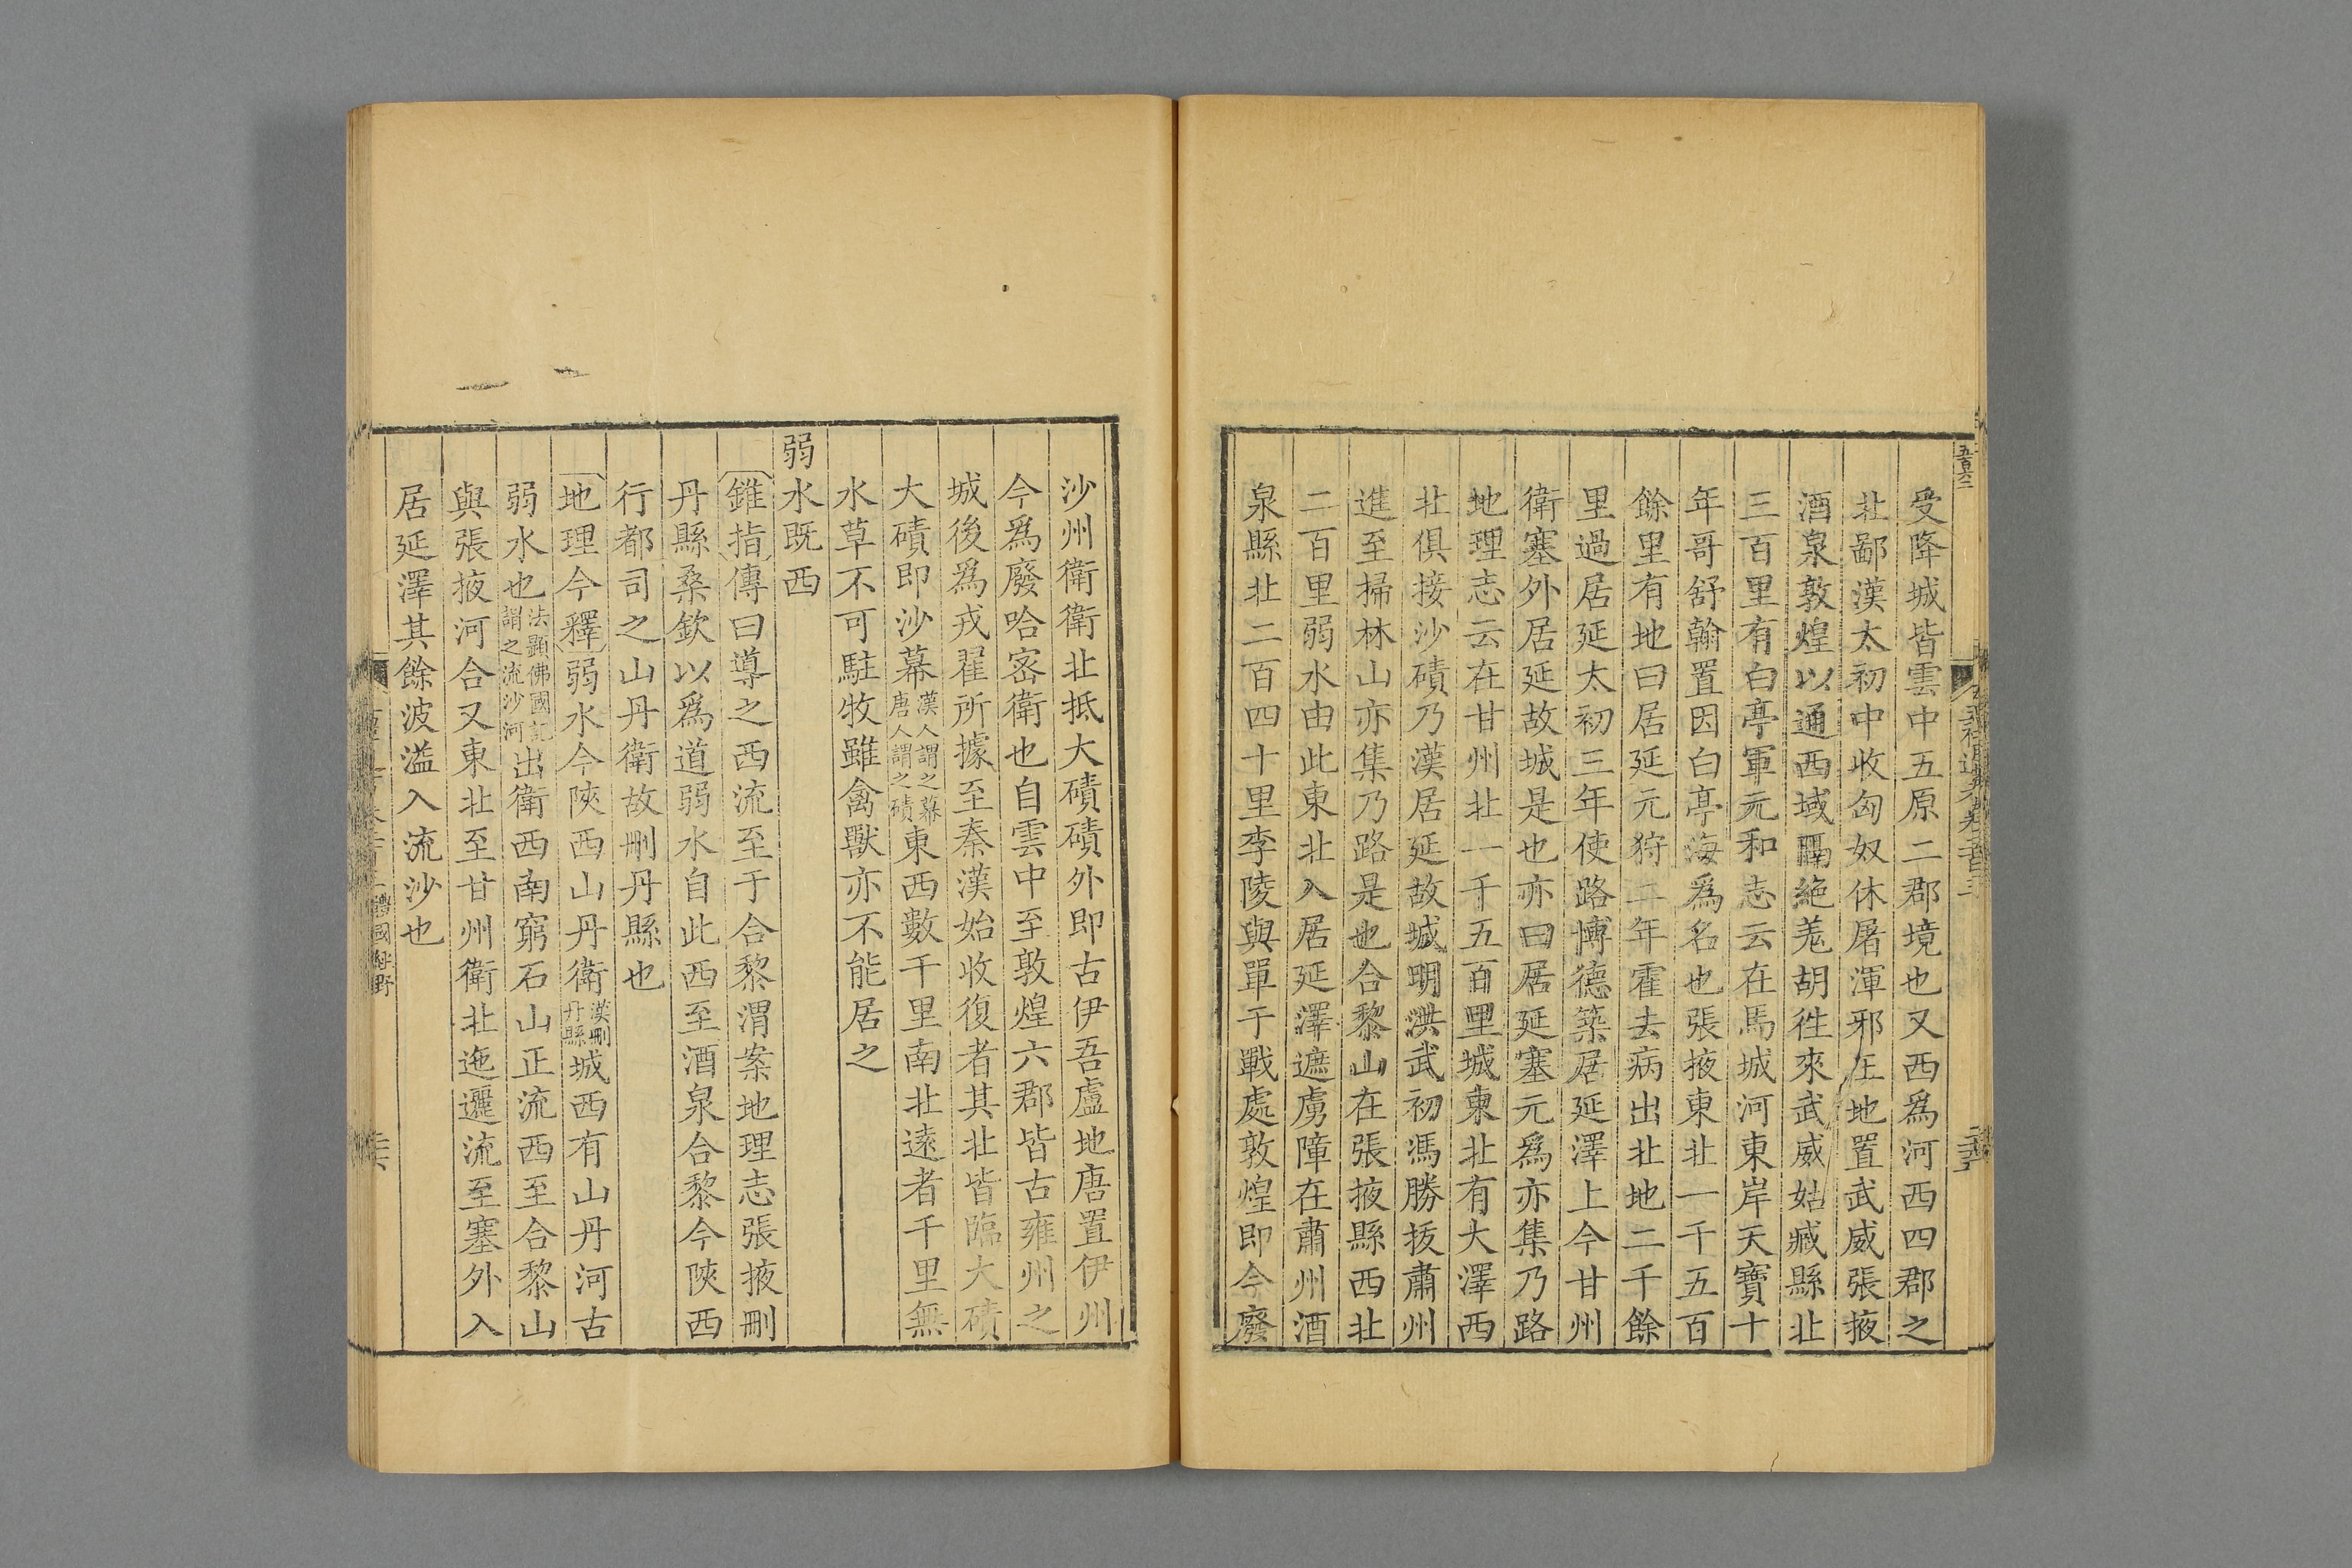 受降城皆雲中五原二郡境也又西爲河西四郡之
北鄙漢太初中收匈奴休屠渾邪王地置武威張掖
酒泉敦煌以通西域隔絶羌胡徃來武威姑臧縣北
三百里有白亭軍元和志云在馬城河東岸天寶十
年哥舒翰置因白亭海爲名也張掖東北一千五百
餘里有地曰居延元狩二年霍去病出北地二千餘
里過居延太初三年使路博德築居延澤上今甘州
衛塞外居延故城是也亦曰居延塞元爲亦集乃路
地理志云在甘州北一千五百里城東北有大澤西
北俱接沙磧乃漢居延故城明洪武初馮勝拔肅州
進至掃林山亦集乃路是也合黎山在張掖縣西北
二百里弱水由此東北入居延澤遮虜障在肅州酒
泉縣北二百四十里李陵與單于戰處敦煌即今廢
沙州衛衛北抵大磧磧外即古伊吾盧地唐置伊州
今爲廢哈密衛也自雲中至敦煌六郡皆古雍州之
城後爲戎翟所據至秦漢始收復者其北皆臨大磧
大磧即沙幕漢人謂之幕唐人謂之磧東西數千里南北遠者千里無
水草不可駐牧雖禽獸亦不能居之
弱水既西
錐指傳曰導之西流至于合黎渭案地理志張掖刪
丹縣桑欽以爲道弱水自此西至酒泉合黎今陝西
行都司之山丹衛故刪丹縣也
地理今釋弱水今陝西山丹衛漢刪丹縣城西有山丹河古
弱水也法顯佛國記謂之流沙河出衛西南窮石山正流西至合黎山
與張掖河合又東北至甘州衛北迤邐流至塞外入
居延澤其餘波溢入流沙也